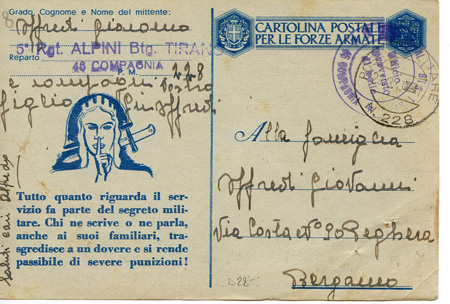 Grado, Cognome e Nome del mittente:
Offredi Giacomo
5° Rgt. ALPINI Btg. TIRANO
Reparto
46 COMPAGNIA
P. M. 228
figlio Offredi
Tutto quanto riguarda il ser-
vizio fa parte del segreto mili-
tare. Chi ne scrive o ne parla,
anche ai suoi familiari, tra-
sgredisce a un dovere e si rende
passibile di severe punizioni!
Saluti cari Alfredo
CARTOLINA POSTALE
PER LE FORZE ARMATE
N. 228
Alla famiglia
Offredi Giovanni
Via Costa N° 90
Bergamo